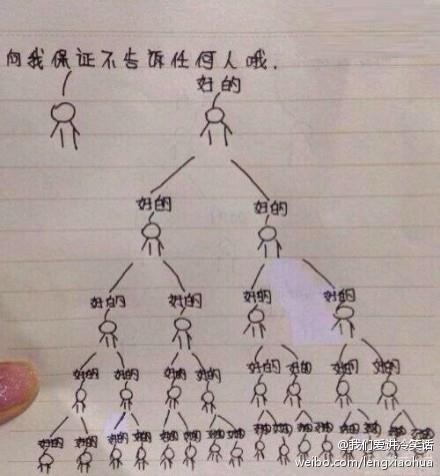 向我保证不告诉任何人哦.
好的
好的 好的
好的 好的 好的 好的
好的 好的 好的 好的 好的 好的 好的 好的
好的 好的 好的 好的 好的 好的 好的 好的 好的 好的 好的 好的 好的 好的
@我们爱讲冷笑话
weibo.com/lengxiaohua